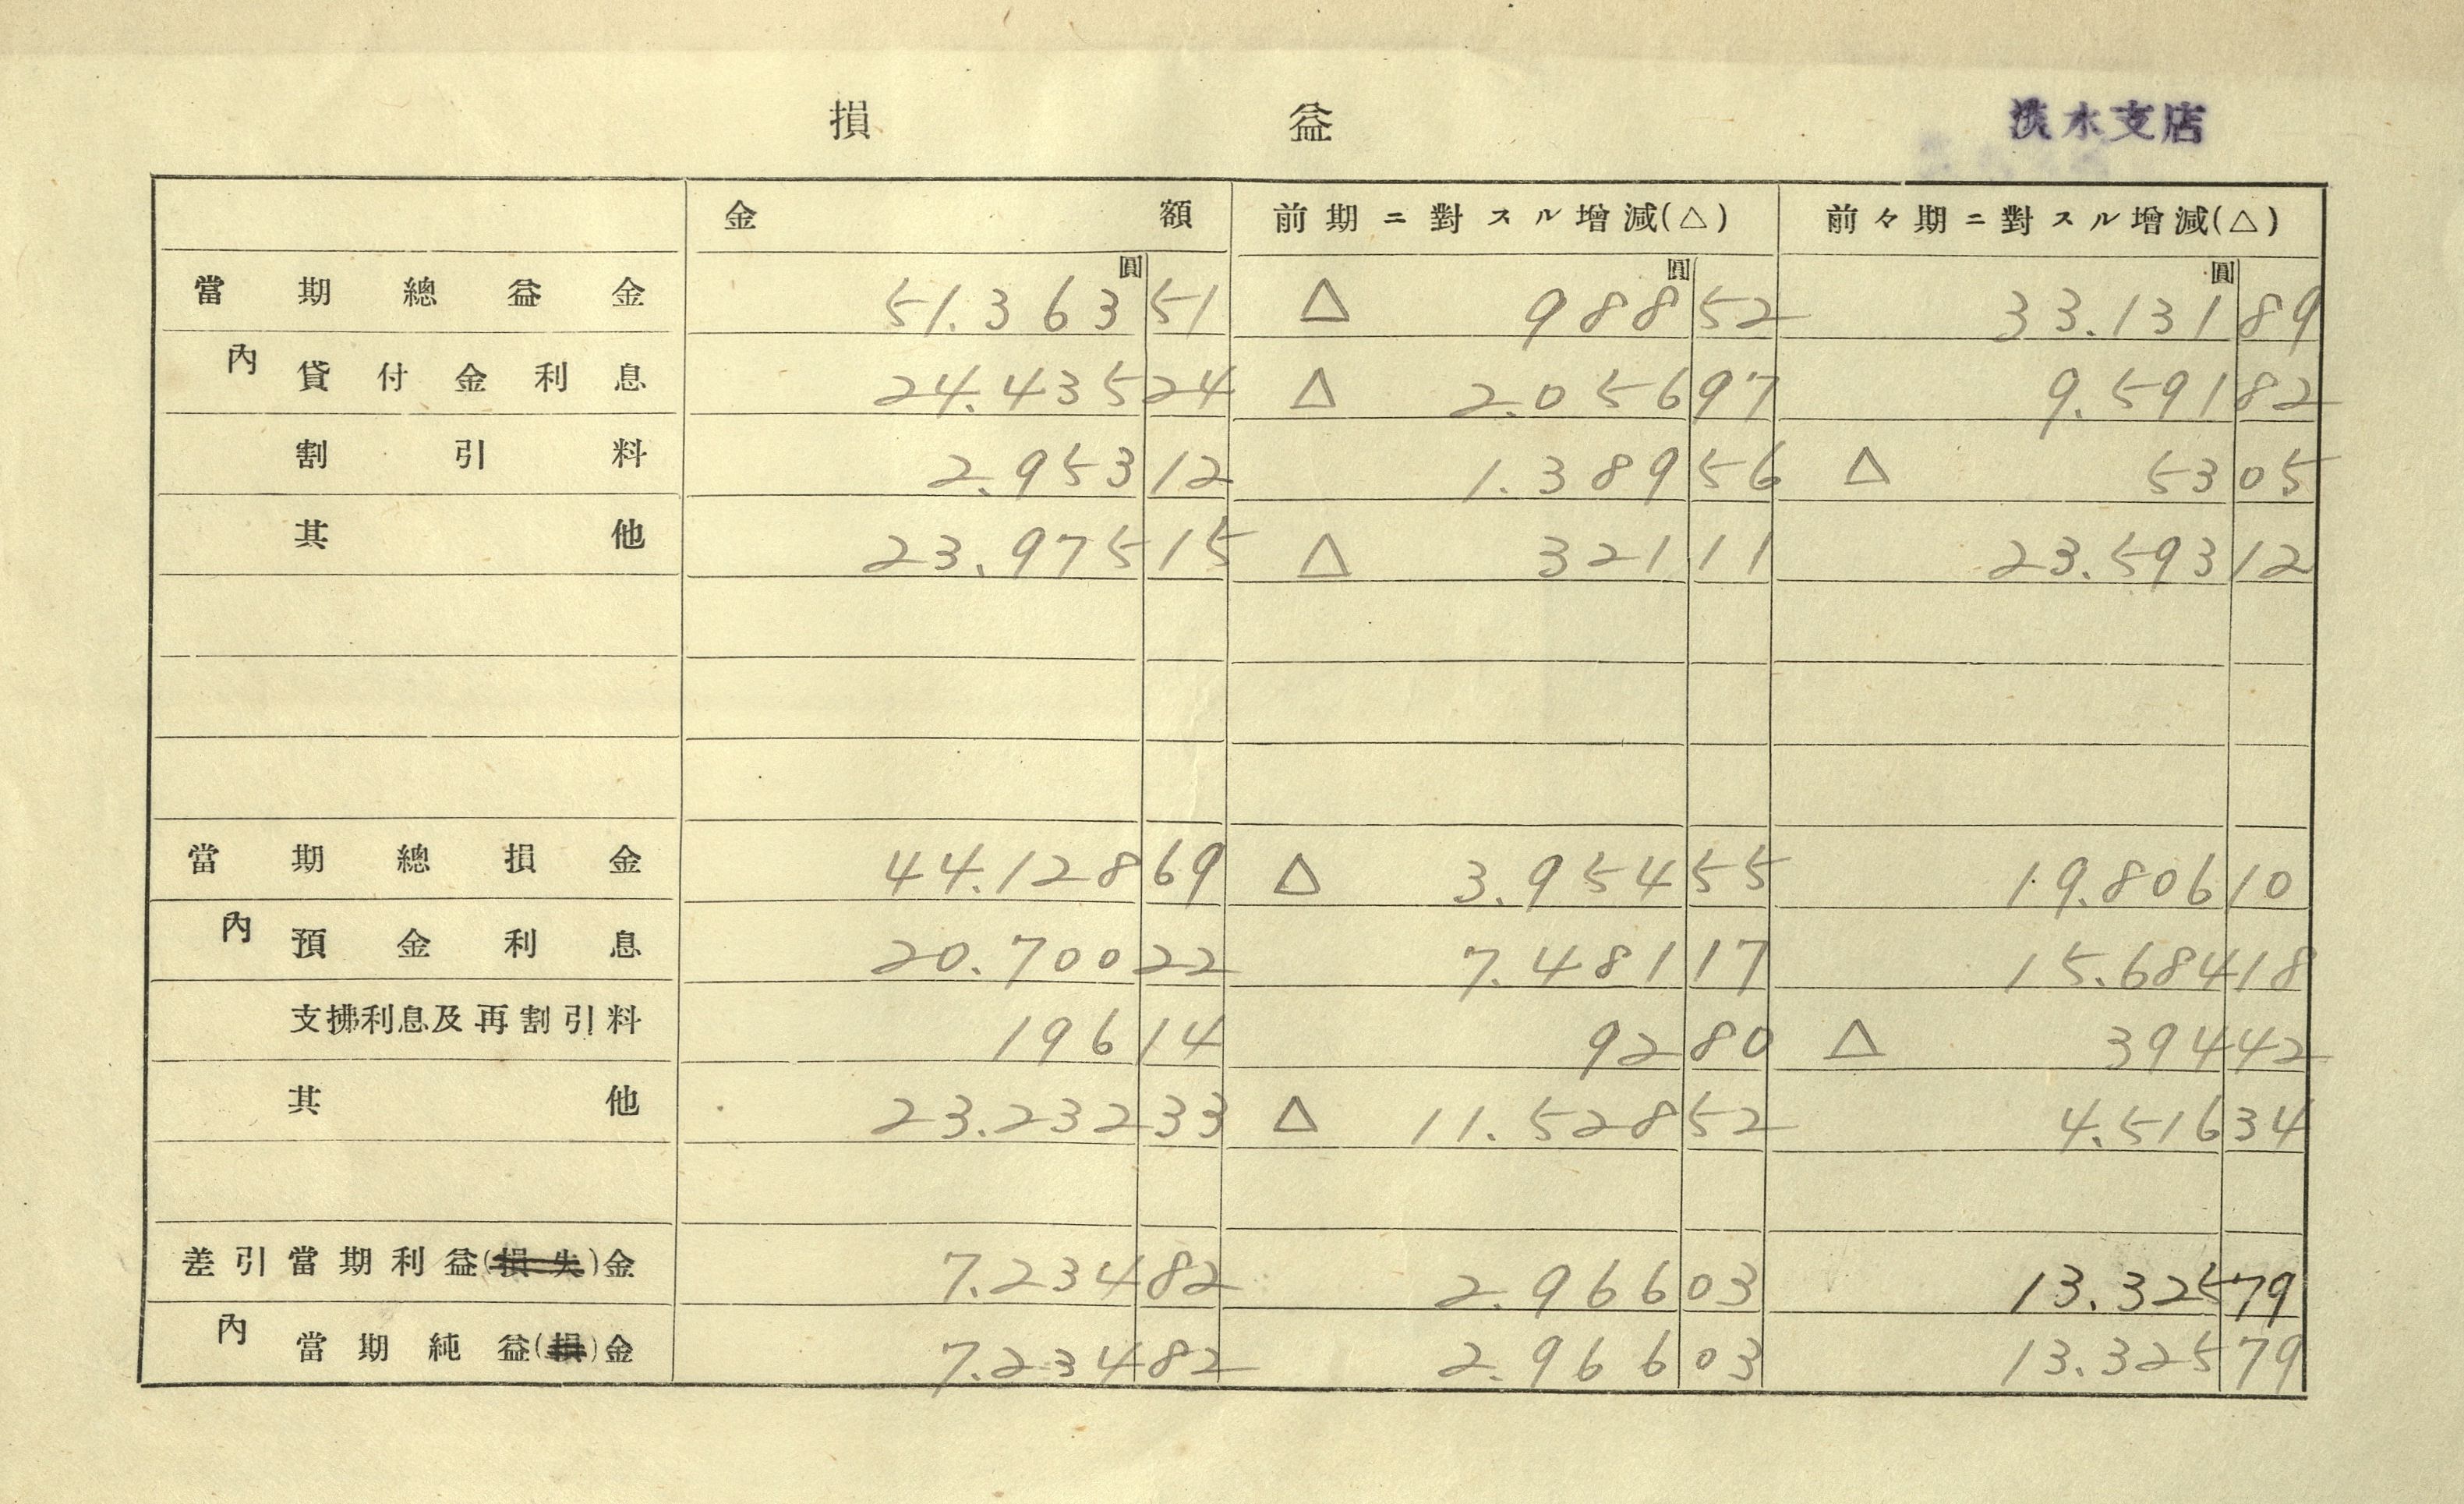 損益
淡水支店
金額 前期ニ對スル增減(△) 前々期ニ對スル增減(△)
圓 圓 圓
當期總益金 51.363 51 △ 988 52 33.131 89
內 貸付金利息 24.435 24 △ 2.056 97 9.591 82
割引料 2.953 12 1.389 56 △ 53 05
其他 23.975 15 △ 321 11 23.593 12
當期總損金 44.128 69 △ 3.954 55 19.806 10
內 預金利息 20.700 22 7.481 17 15.684 18
支拂利息及再割引料 196 14 92 80 △ 394 42
其他 23.232 33 △ 11.528 52 4.516 34
差引當期利益(損失)金 7.234 82 2.966 03 13.325 79
內 當期純益(損)金 7.234 82 2.966 03 13.325 79